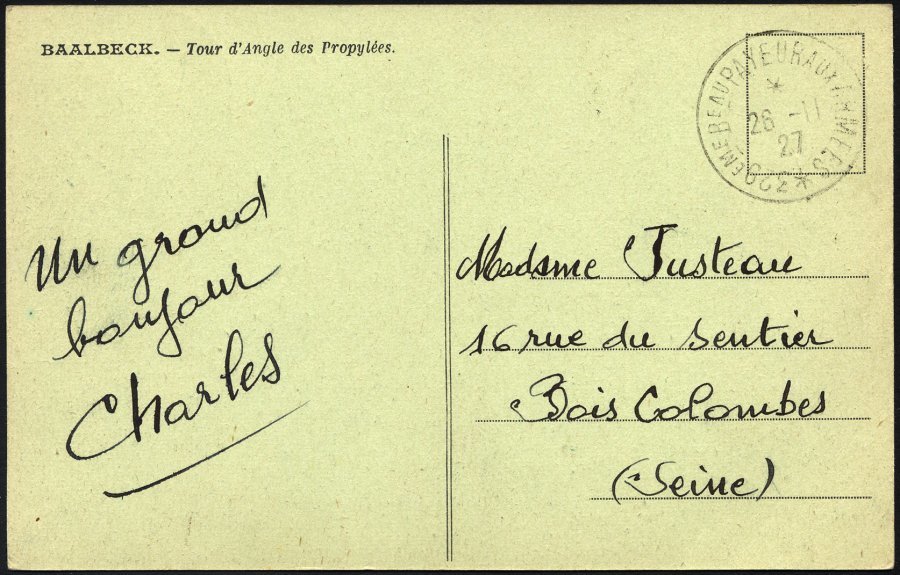 BAALBECK. — Tour d'Angle des Propylées.
BEAU PAYEUR AUX ARMEES
* 26 -11
27
Un grand
bonjour
Charles
Madame Justeau
16 rue du Sentier
Bois Colombes
(Seine)